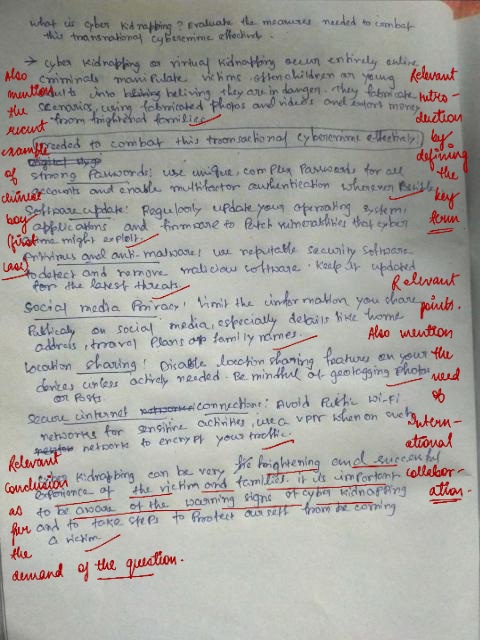 what is cyber kidnapping? Evaluate the measures needed to combat
this transnational cybercrime effective.
→ cyber kidnapping or virtual kidnapping occur entirely online
criminals manipulate victims often children or young
adults into beliving they are in danger. They fabricate
scenarios, using fabricated photos and videos and extort money
from frightened families.
needed to combat this transactional cybercrime effectively:
strong Passwords: use unique, complex Passwords for all
accounts and enable multifactor authentication wherever
Software update: Regularly update your operating system,
applications and firmware to Patch vulnerabilities that cyber
might exploit.
Antivirus and anti-malware: use reputable security software
to detect and remove malicious software. Keep it updated
for the latest threats.
Social media Privacy: limit the information you share
Publically on social media, especially details like home
address, travel Plans or family names.
Location sharing: Disable location sharing features on your
devices unless actively needed. Be mindful of geotagging photos
or Posts.
Secure internet connections: Avoid Public Wi-Fi
networks for sensitive activities, use a vpn when on such
networks to encrypt your traffic.
Cyber Kidnapping can be very and
experience of the victim and families. it is important
to be aware of the warning signs of cyber kidnapping
and to take steps to Protect ourself from be coming
a victim
Also
mention
the
recent
example
of
boy
(first
case)
Relevant
intro-
duction
by
defining
the
key
term
Relevant
points.
Also mention
the
need
of
Intern-
ational
collabor-
ation.
Relevant
conclusion
as
per
the
demand of the question.